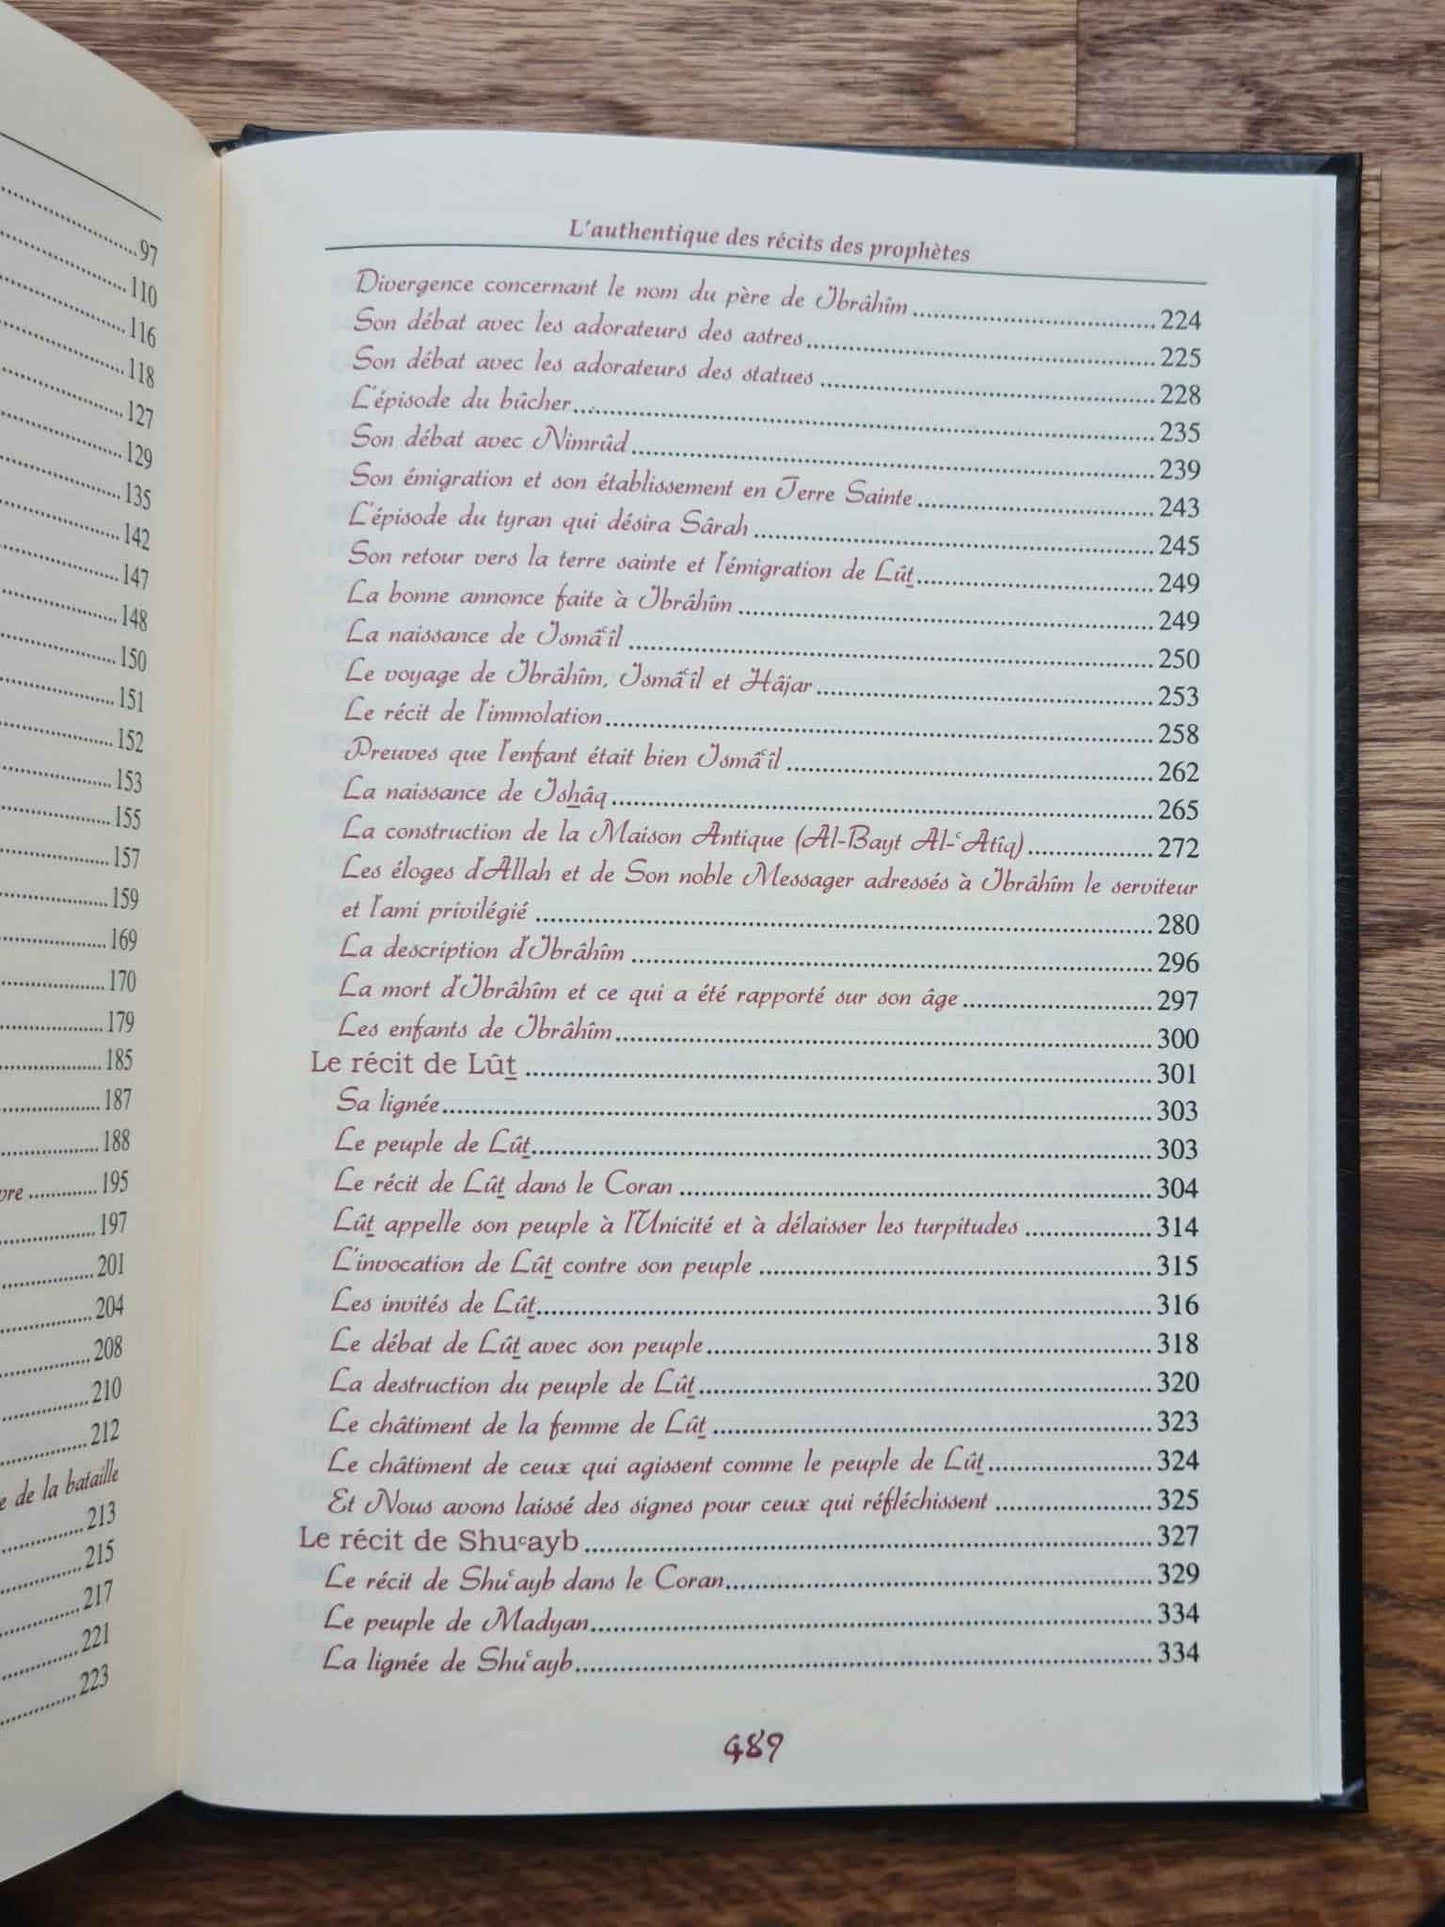 97
110
116
118
127
129
135
142
147
148
150
151
152
153
155
157
159
169
170
179
185
187
188
195
197
201
204
208
210
212
de la bataille
213
215
217
221
223
L'authentique des récits des prophètes
Divergence concernant le nom du père de Ibrâhîm 224
Son débat avec les adorateurs des astres 225
Son débat avec les adorateurs des statues 228
L'épisode du bûcher 235
Son débat avec Nimrûd 239
Son émigration et son établissement en Terre Sainte 243
L'épisode du tyran qui désira Sârah 245
Son retour vers la terre sainte et l'émigration de Lûṯ 249
La bonne annonce faite à Ibrâhîm 249
La naissance de Ismâʿîl 250
Le voyage de Ibrâhîm, Ismâʿîl et Hâjar 253
Le récit de l'immolation 258
Preuves que l'enfant était bien Ismâʿîl 262
La naissance de Isẖâq 265
La construction de la Maison Antique (Al-Bayt Al-ʿAtîq) 272
Les éloges d'Allah et de Son noble Messager adressés à Ibrâhîm le serviteur
et l'ami privilégié 280
La description d'Ibrâhîm 296
La mort d'Ibrâhîm et ce qui a été rapporté sur son âge 297
Les enfants de Ibrâhîm 300
Le récit de Lûṯ 301
Sa lignée 303
Le peuple de Lûṯ 303
Le récit de Lûṯ dans le Coran 304
Lûṯ appelle son peuple à l'Unicité et à délaisser les turpitudes 314
L'invocation de Lûṯ contre son peuple 315
Les invités de Lûṯ 316
Le débat de Lûṯ avec son peuple 318
La destruction du peuple de Lûṯ 320
Le châtiment de la femme de Lûṯ 323
Le châtiment de ceux qui agissent comme le peuple de Lûṯ 324
Et Nous avons laissé des signes pour ceux qui réfléchissent 325
Le récit de Shuʿayb 327
Le récit de Shuʿayb dans le Coran 329
Le peuple de Madyan 334
La lignée de Shuʿayb 334
489